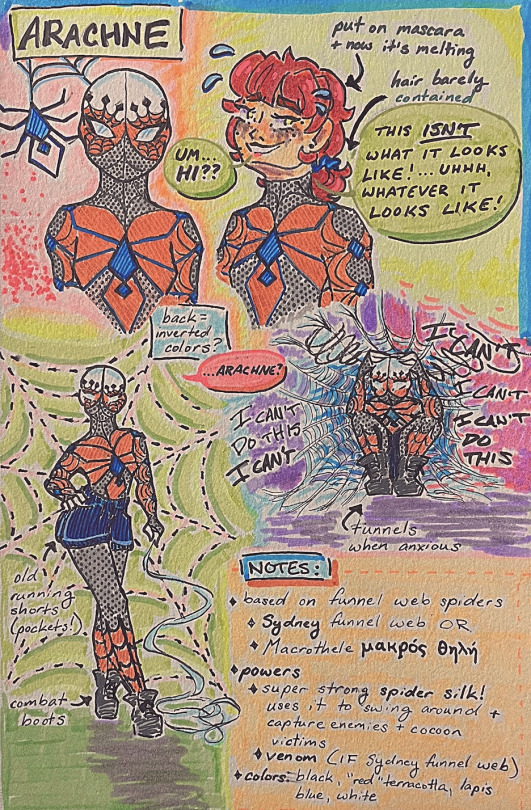 ARACHNE
put on mascara
+ now it's melting
hair barely
contained
UM...
HI??
THIS ISN'T
WHAT IT LOOKS
LIKE!...UHHH,
WHATEVER IT
LOOKS LIKE!
back =
inverted
colors?
...ARACHNE?
I CAN'T
I CAN'T
I CAN'T
DO
THIS
I CAN'T
DO THIS
I CAN'T
funnels
when anxious
old
running
shorts
(pockets!)
combat
boots
NOTES:
based on funnel web spiders
Sydney funnel web OR
Macrothele μακρός θηλή
powers
super strong spider silk!
uses it to swing around +
capture enemies + cocoon
victims
venom (IF Sydney funnel web)
colors: black, "red" terracotta, lapis
blue, white